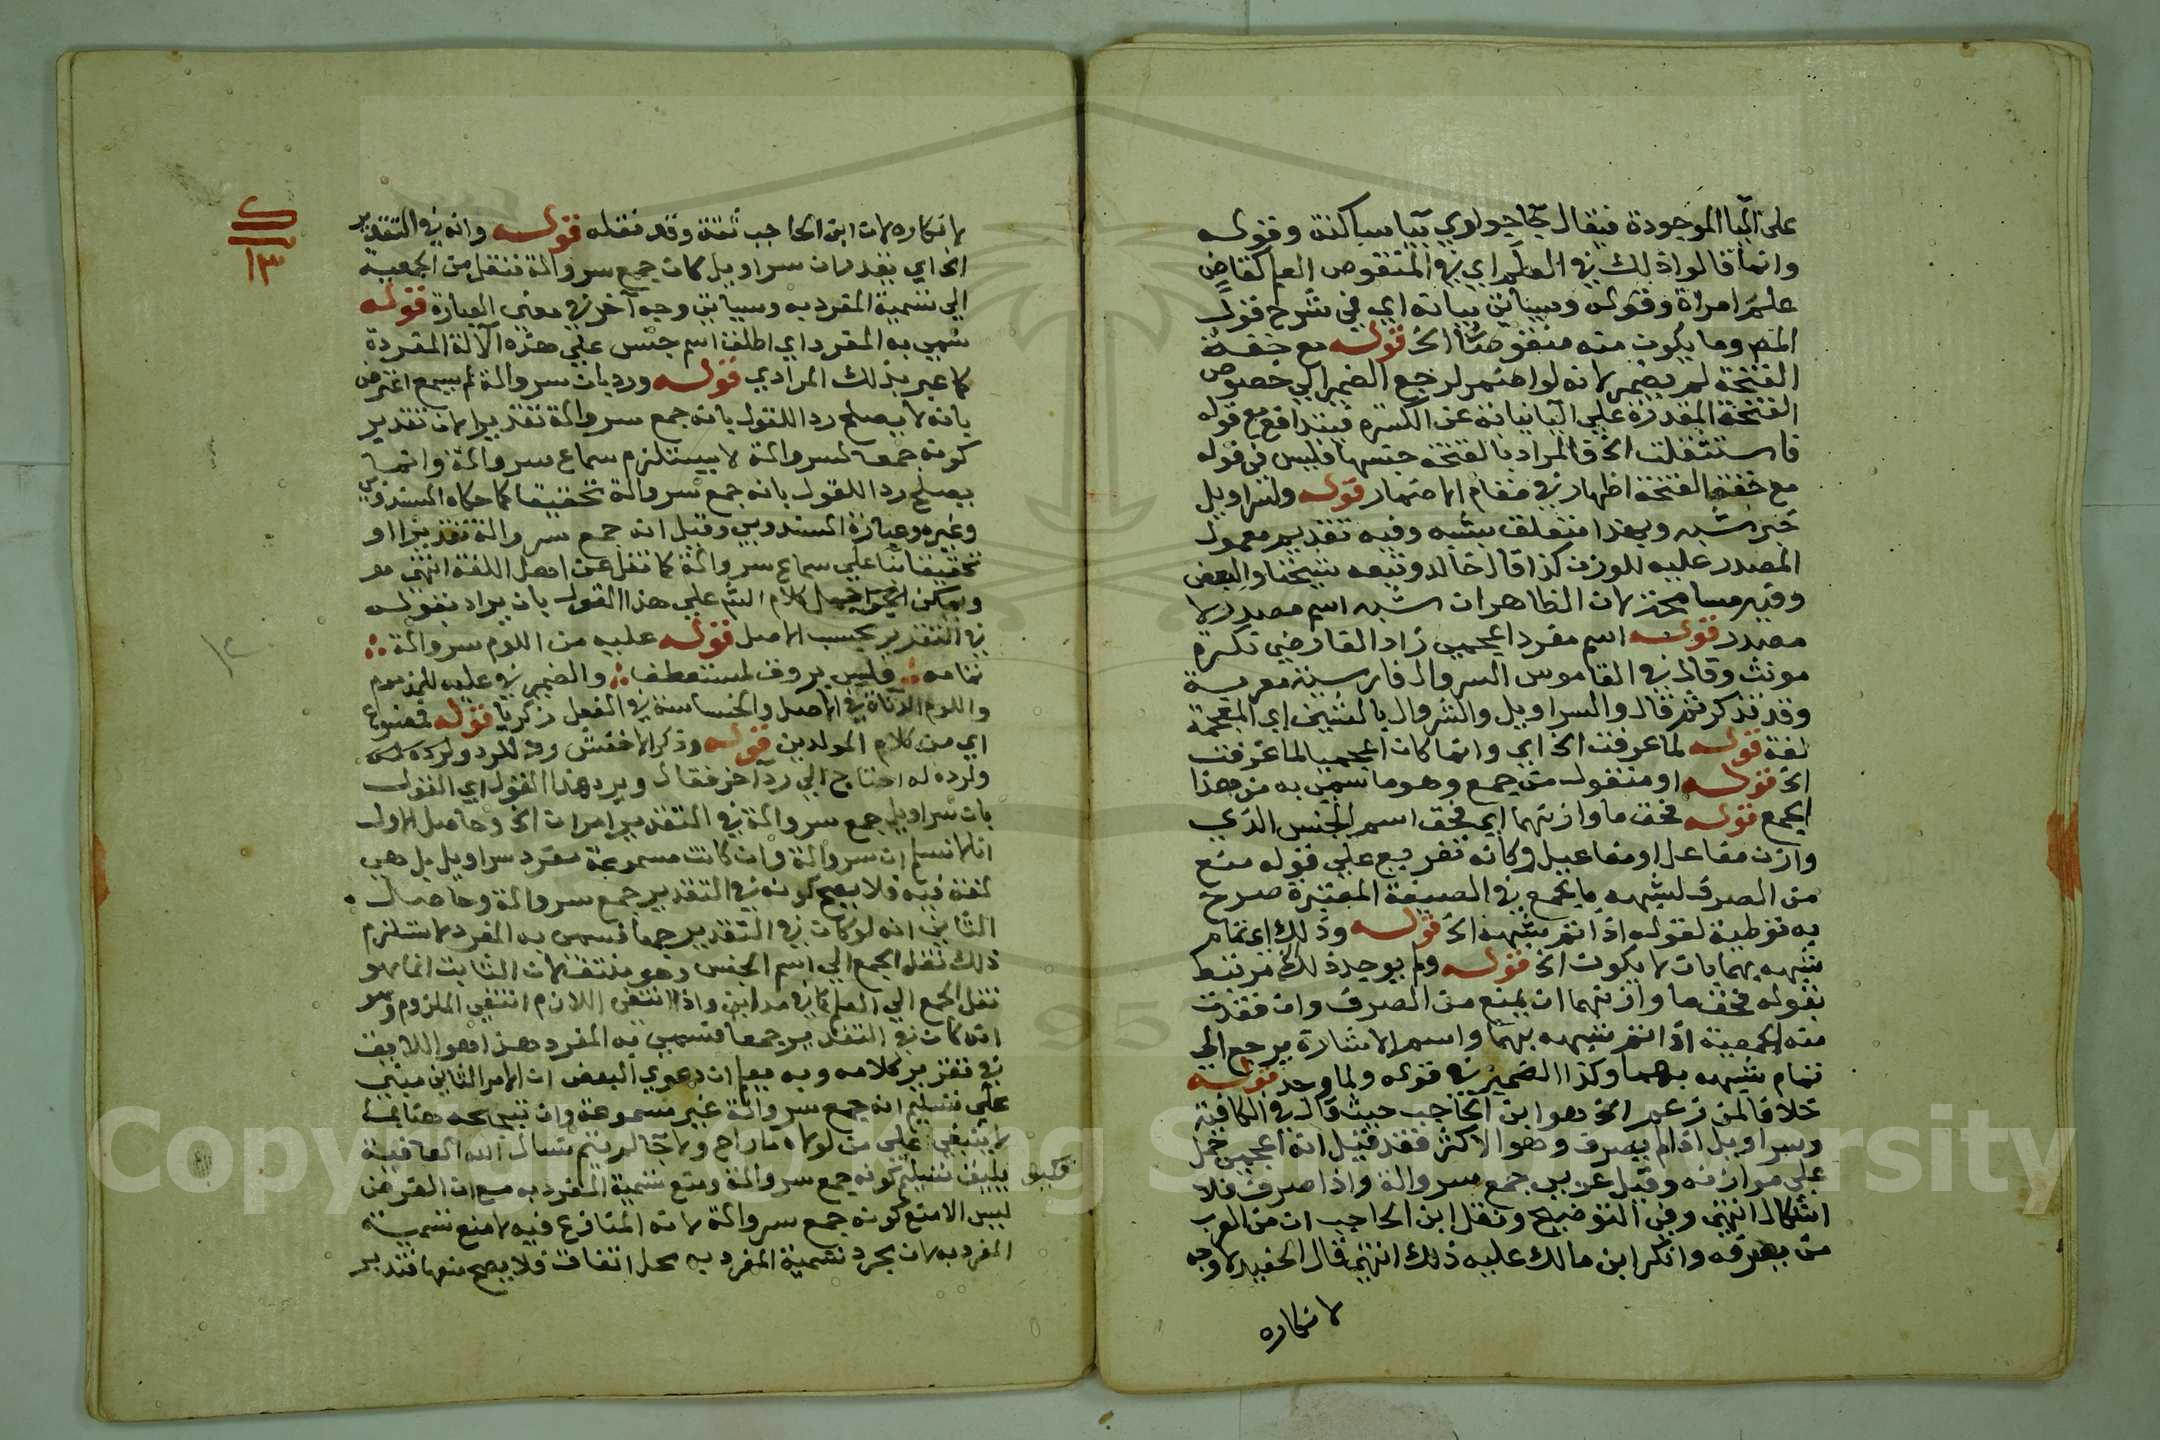 على اليا الموجودة فيقال يا جواري بيا ساكنة وقوله
وانما قالوا ذلك في العلم اي في المنقوص العلم كقاض
علم امراة وقوله وسياتي بيانه اي في شرح قول
المص وما يكون منه منقوصا الخ قوله مع خفة
الفتحة لم يضمر لانه لو اضمر لرجع الضمير الي خصوص
الفتحة المقدرة علي اليا نيابة عن الكسرة فيتدافع مع قوله
فاستثقلت الخ فالمراد بالفتحة جنسها فليس في قوله
مع خفة الفتحة اظهار في مقام الاضمار قوله ولسراويل
خبر شبه وبهذا متعلق بشبه وفيه تقديم معمول
المصدر عليه للوزن كذا قال خالد وتبعه شيخنا والبعض
وفيه مسامحة لان الظاهر ان شبه اسم مصدر لا
مصدر قوله اسم مفرد اعجمي زاد الفارضي نكرة
مونث وقال في القاموس السروال فارسية معربة
وقد تذكر ثم قال والسراويل والشروال بالشين اي المعجمة
لغة قوله لما عرفت الخ اي وانما كان اعجميا لما عرفت
الخ قوله او منقول من جمع وهو ما سمي به من هذا
الجمع قوله فحق ما وازنهما اي فحق اسم الجنس الذي
وازن مفاعل او مفاعيل وكانه تفريع علي قوله منع
من الصرف لشبهه بالجمع في الصيغة المعتبرة صرح
به توطية لقوله اذا تم شبهه الخ قوله وذلك اي تمام
شبهه بهما بان لا يكون الخ قوله ولم يوجد ذلك الخ مرتبط
بقوله فحق ما وازنهما ان يمنع من الصرف وان فقدت
منه الجمعية اذا تم شبهه بهما واسم الاشارة يرجع الي
تمام شبهه بهما وكذا الضمير في قوله ولما وجد قوله
خلافا لمن زعم الخ هو ابن الحاجب حيث قال في الكافية
وسراويل اذا لم يصرف وهو الاكثر فقد قيل انه اعجمي حمل
علي موازنه وقيل عربي جمع سروالة واذا صرف فلا
اشكال انتهي وفي التوضيح ونقل ابن الحاجب ان من العرب
من يصرفه وانكر ابن مالك عليه ذلك انتهي قال الحفيد لا وجه
لانكاره
لانكاره لان ابن الحاجب ثقة وقد نقله قوله وانه في التقدير
الخ اي يقدر ان سراويل كان جمع سروالة فنقل من الجمعية
الي تسمية المفرد به وسياتي وجه آخر في معني العبارة قوله
سمي به المفرد اي اطلق اسم جنس علي هذه الآلة المفردة
كما عبر بذلك المرادي قوله ورد بان سروالة لم يسمع اعترض
بانه لا يصلح ردا للقول بانه جمع سروالة تقديرا لان تقدير
كونه جمعا لسروالة لا يستلزم سماع سروالة وانما
يصلح ردا للقول بانه جمع سروالة تحقيقا كما حكاه السندوبي
وغيره وعبارة السندوبي وقيل انه جمع سروالة تقديرا او
تحقيقا بنا علي سماع سروالة كما نقل عن اهل اللغة انتهي
ويمكن الجواب بحمل كلام الشم علي هذا القول بان يراد بقوله
في التقدير بحسب الاصل قوله عليه من اللوم سروالة
تمامه فليس يرق لمستعطف والضمير في عليه للمذموم
واللوم الدناة في الاصل والخساسة في الفعل زكريا قوله فمصنوع
اي من كلام المولدين قوله وذكر الاخفش
ولرده له احتاج الي رد آخر فقال ويرد هذا القول اي القول
بان سراويل جمع سروالة في التقدير امران الخ وحاصل الاول
انا لا نسلم ان سروالة وان كانت مسموعة مفرد سراويل بل هي
لغة فيه فلا يصح كونه في التقدير جمع سروالة وحاصل
الثاني انه لو كان في التقدير جمعا فسمي به المفرد لاستلزم
ذلك نقل الجمع الي اسم الجنس وهو منتف لان الثابت انما هو
نقل الجمع الي العلم كما في مداين واذا انتفي اللازم انتفي الملزوم وهو
انه كان في التقدير جمعا فسمي به المفرد هذا هو اللايق
في تقرير كلامه وبه يعلم ان دعوي البعض ان الامر الثاني مبني
علي تسليم انه جمع سروالة غير مسموعة وان
لا ينبغي علي من نسال الله العافية
يليق تسليم كونه جمع سروالة ومنع تسمية المفرد به مع ان الغرض
ليس الا منع كونه جمع سروالة لانه المتنازع فيه لا منع تسمية
المفرد به لان مجرد تسمية المفرد به محل اتفاق فلا يصح منعها فتدبر
١٣